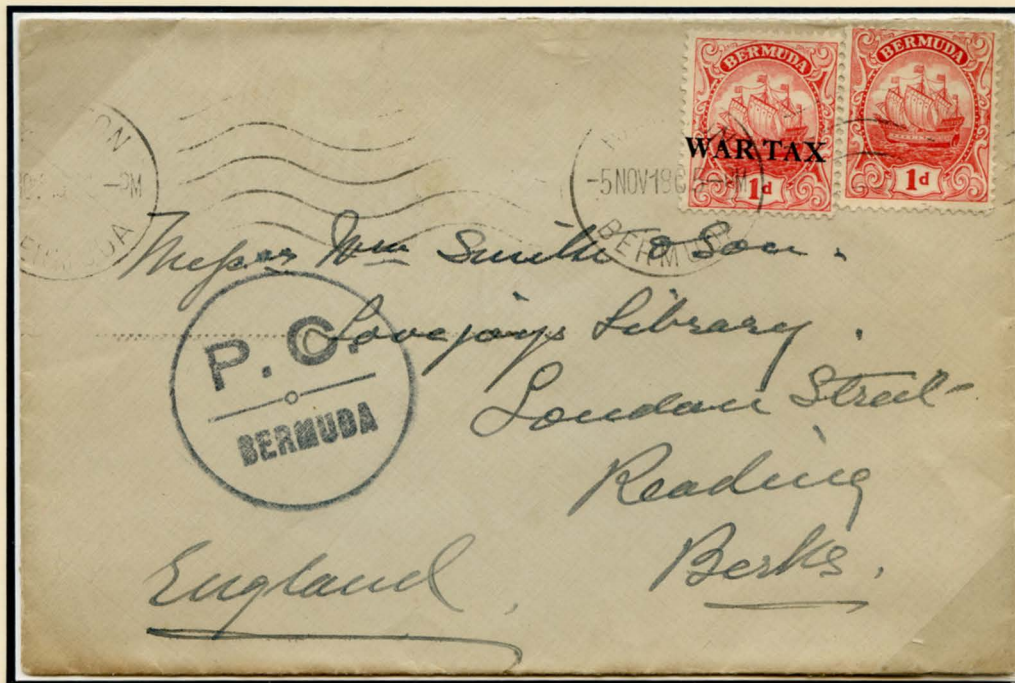 BERMUDA
WAR TAX
1d
BERMUDA
1d
-PM
-5NOV19
BERMUDA
Messrs Wm Smith & Son.
Lovejoys Library.
London Street
Reading
Berks.
England.
P.C.
BERMUDA